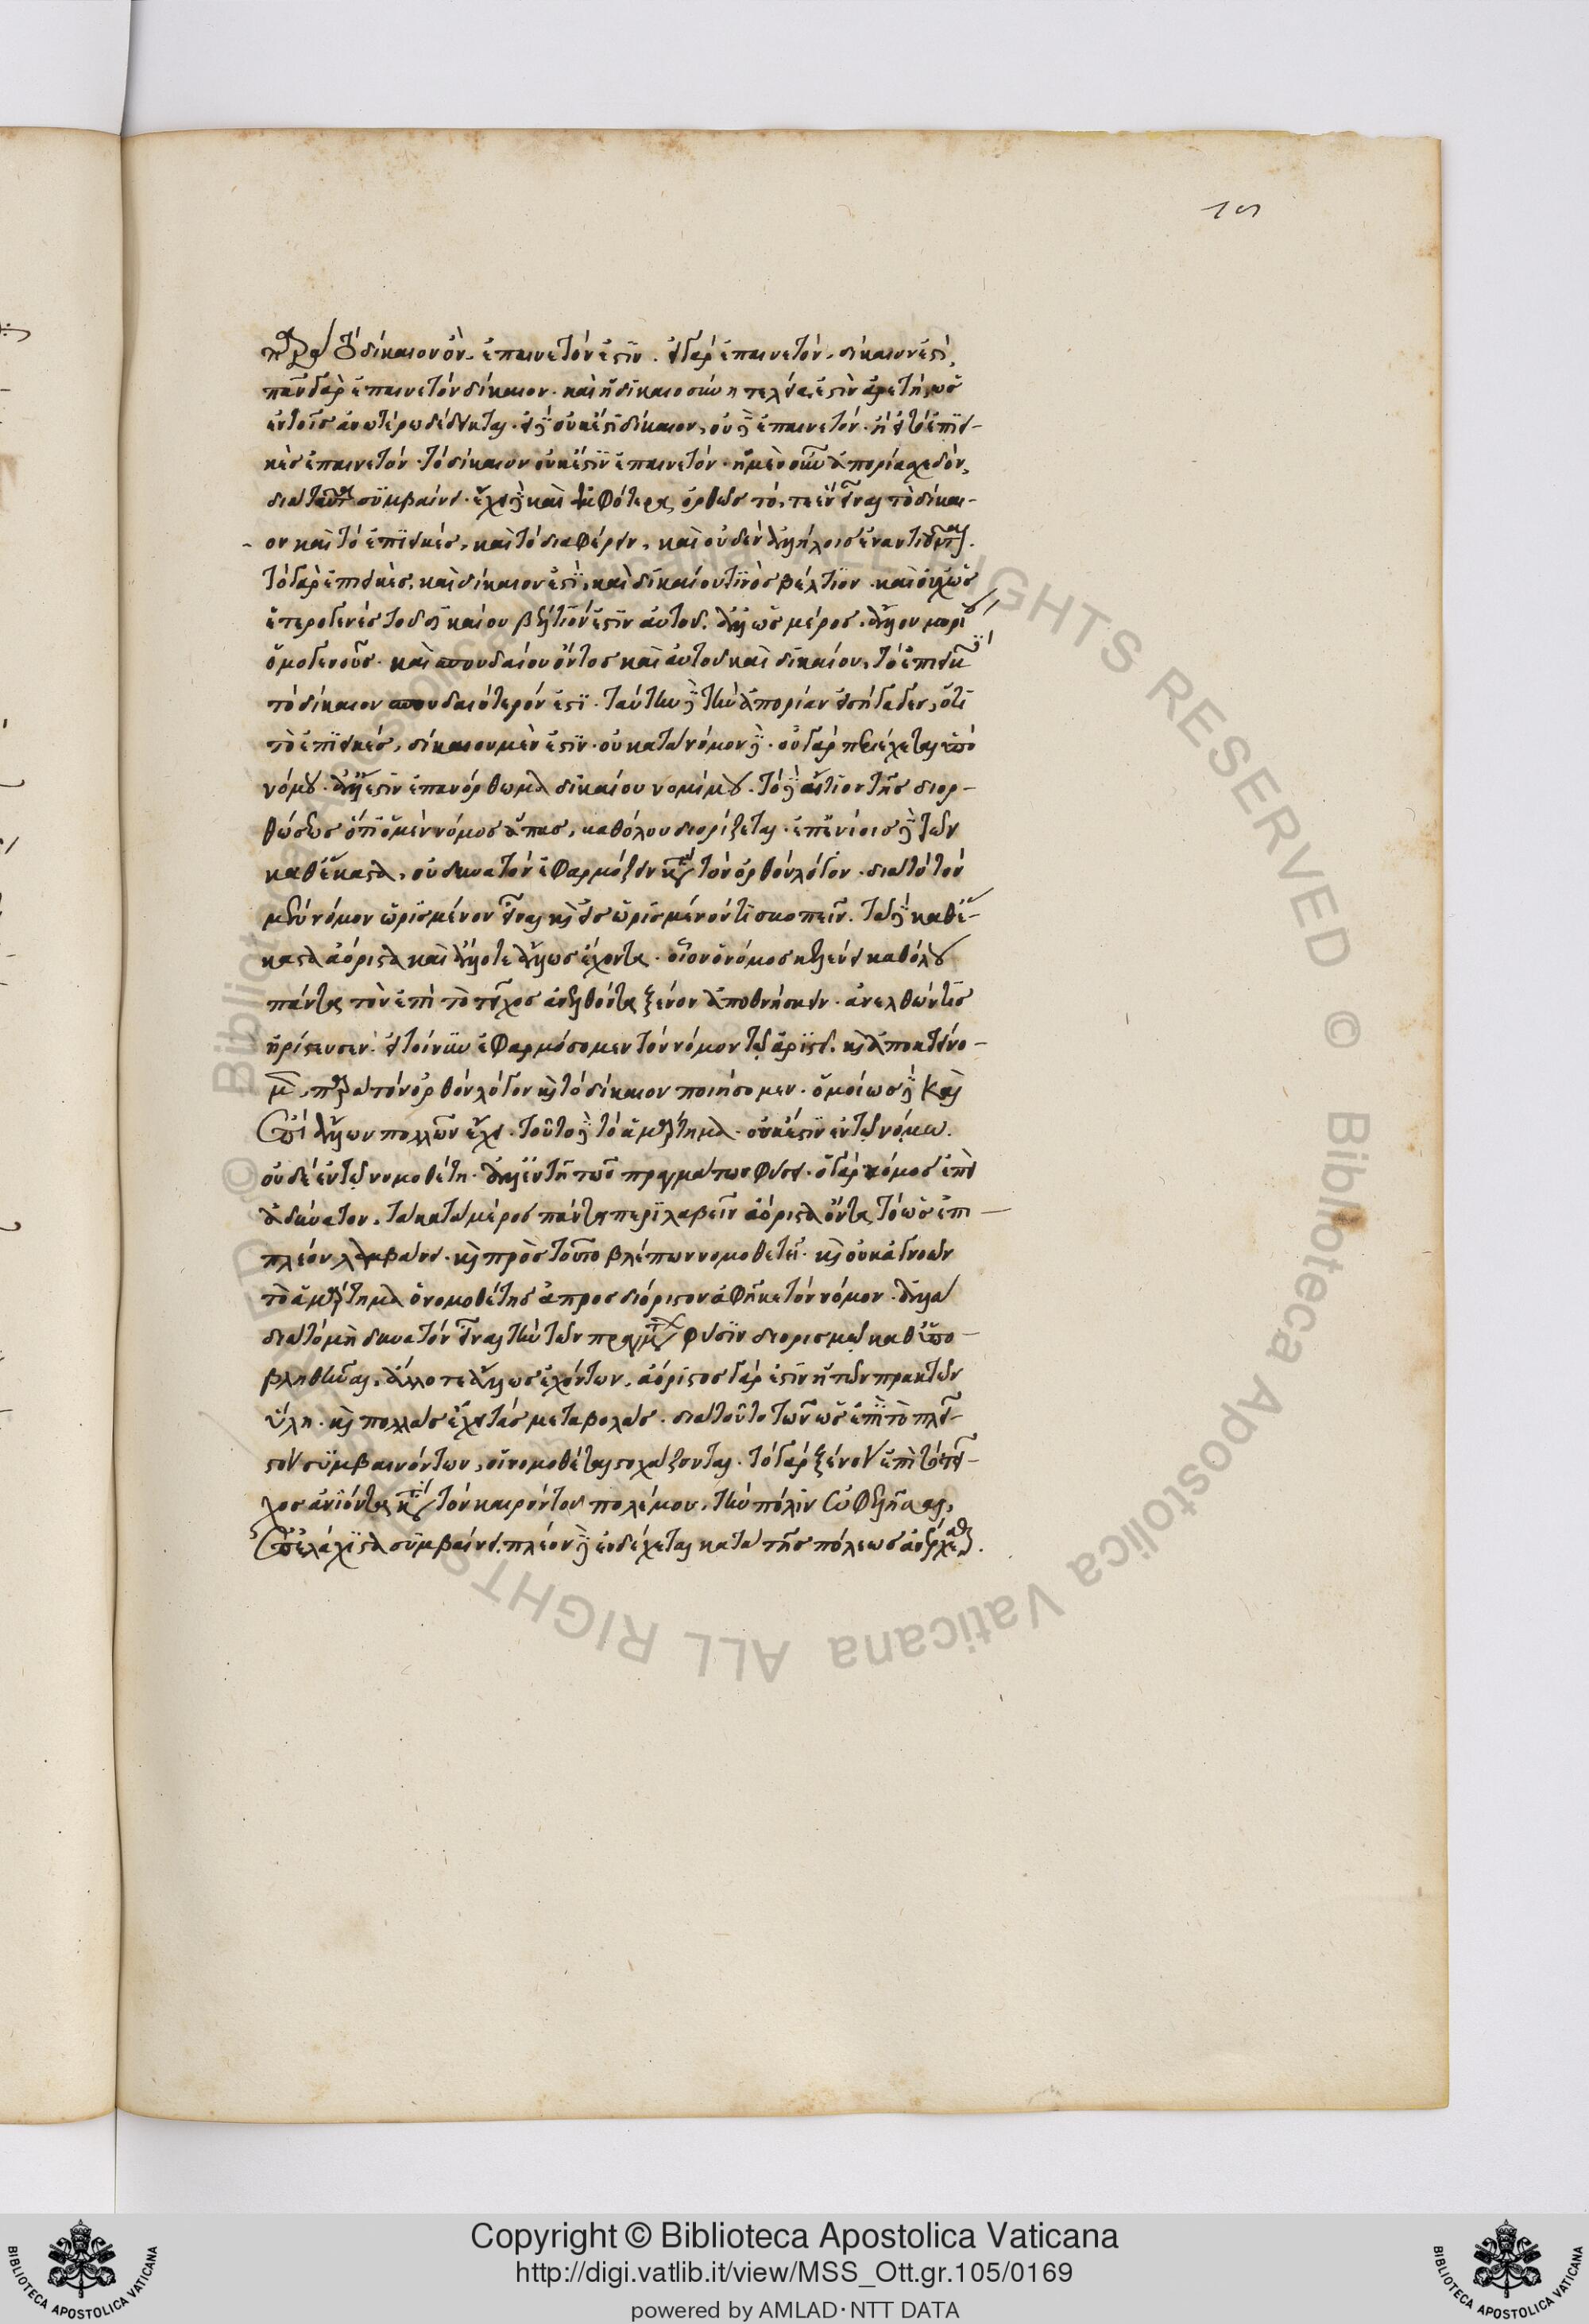 παρὰ τὸ δίκαιον ὂν, ἐπαινετόν ἐστιν. εἰ γὰρ ἐπαινετὸν, δίκαιον ἐστὶ,
πᾶν γὰρ ἐπαινετὸν δίκαιον. καὶ ἡ δικαιοσύνη τελεία ἐστὶν ἀρετὴ, ὡς
ἐν τοῖς ἀνωτέρω δέδεικται. εἰ δὲ οὐκ ἔστι δίκαιον, οὐδὲ ἐπαινετόν. ἢ εἰ τὸ ἐπιει-
κὲς ἐπαινετὸν τὸ δίκαιον οὐκ ἔστιν ἐπαινετόν. ἡ μὲν οὖν ἀπορία σχεδὸν,
διὰ ταῦτα συμβαίνει. ἔχει δὲ καὶ ἀμφότερα ὀρθῶς τό, τε ἓν εἶναι τὸ δίκαι-
ον καὶ τὸ ἐπιεικὲς, καὶ τὸ διαφέρειν, καὶ οὐδὲν ἀλλήλοις ἐναντιοῦται.
τὸ γὰρ ἐπιεικὲς, καὶ δίκαιον ἐστὶ, καὶ δικαίου τινὸς βέλτιον. καὶ οὐχ ὡς
ἑτερογενὲς τοῦ δικαίου βέλτιόν ἐστιν αὐτοῦ. ἀλλ' ὡς μέρος, ἄλλου μορίου
ὁμογενοῦς. καὶ σπουδαίου ὄντος καὶ αὐτοῦ καὶ δικαίου, τὸ ἐπιεικὲς
τὸ δίκαιον σπουδαιότερόν ἐστι. ταύτην δὲ τὴν ἀπορίαν εἰσήγαγεν, ὅτι
τὸ ἐπιεικὲς, δίκαιον μὲν ἐστὶν. οὐ κατὰ νόμον δέ. οὐ γὰρ περιέχεται ὑπὸ
νόμου. ἀλλ' ἔστιν ἐπανόρθωμα δικαίου νομίμου. τὸ δὲ αἴτιον τῆς διορ-
θώσεως ὅτι ὁ μὲν νόμος ἅπας, καθόλου διορίζεται. ἐπ' ἐνίοις δὲ τῶν
καθέκαστα, οὐ δυνατὸν ἐφαρμόζειν κατὰ τὸν ὀρθὸν λόγον. διὰ τὸ τὸν
μὲν νόμον ὡρισμένον εἶναι καὶ εἰς ὡρισμένον τι σκοπεῖν. τὰ δὲ καθέ-
καστα ἀόριστα καὶ ἄλλοτε ἄλλως ἔχοντα. οἷον ὁ νόμος κελεύει καθόλου
πάντα τὸν ἐπὶ τὸ τεῖχος ἀνελθόντα ξένον ἀποθνήσκειν. ἀνελθών τις
ἠρίστευσεν. εἰ τοίνυν ἐφαρμόσομεν τὸν νόμον τῷ ἀριστεῖ, καὶ ἀποκτείνο-
μεν, παρὰ τὸν ὀρθὸν λόγον καὶ τὸ δίκαιον ποιήσομεν. ὁμοίως δὲ καὶ
ἐπὶ ἄλλων πολλῶν ἔχει. τοῦτο δὲ τὸ ἁμάρτημα, οὐκ ἔστιν ἐν τῷ νόμῳ.
οὐδὲ ἐν τῷ νομοθέτῃ. ἀλλ' ἐν τῇ τῶν πραγμάτων φύσει. ὁ γὰρ νόμος ἐπεὶ
ἀδύνατον, τὰ κατὰ μέρος πάντα περιλαβεῖν ἀόριστα ὄντα, τὸ ὡς ἐπι-
πλέον λαμβάνει. καὶ πρὸς τοῦτο βλέπων νομοθετεῖ. καὶ οὐκ ἀγνοῶν
τὸ ἁμάρτημα ὁ νομοθέτης ἀπροσδιόριστον ἀφῆκε τὸν νόμον. ἀλλὰ
διὰ τὸ μὴ δυνατὸν εἶναι τὴν τῶν πραγμάτων φύσιν διορισμῷ καθυπο-
βληθῆναι, ἄλλοτε ἄλλως ἐχόντων. ἀόριστος γάρ ἐστιν ἡ τῶν πρακτῶν
ὕλη. καὶ πολλὰς ἔχει τὰς μεταβολάς. διὰ τοῦτο τῶν ὡς ἐπὶ τὸ πλεῖ-
στον συμβαινόντων, οἱ νομοθέται στοχάζονται. τὸ γὰρ ξένον ἐπὶ τὸ τεῖ-
χος ἀνιόντα κατὰ τὸν καιρὸν τοῦ πολέμου, τὴν πόλιν ὠφελῆσαι,
ἐπ' ἐλάχιστα συμβαίνει. πλέον δὲ ἐνδέχεται κατὰ τῆς πόλεως ἀνέρχεσθαι.
Copyright © Biblioteca Apostolica Vaticana
http://digi.vatlib.it/view/MSS_Ott.gr.105/0169
powered by AMLAD·NTT DATA